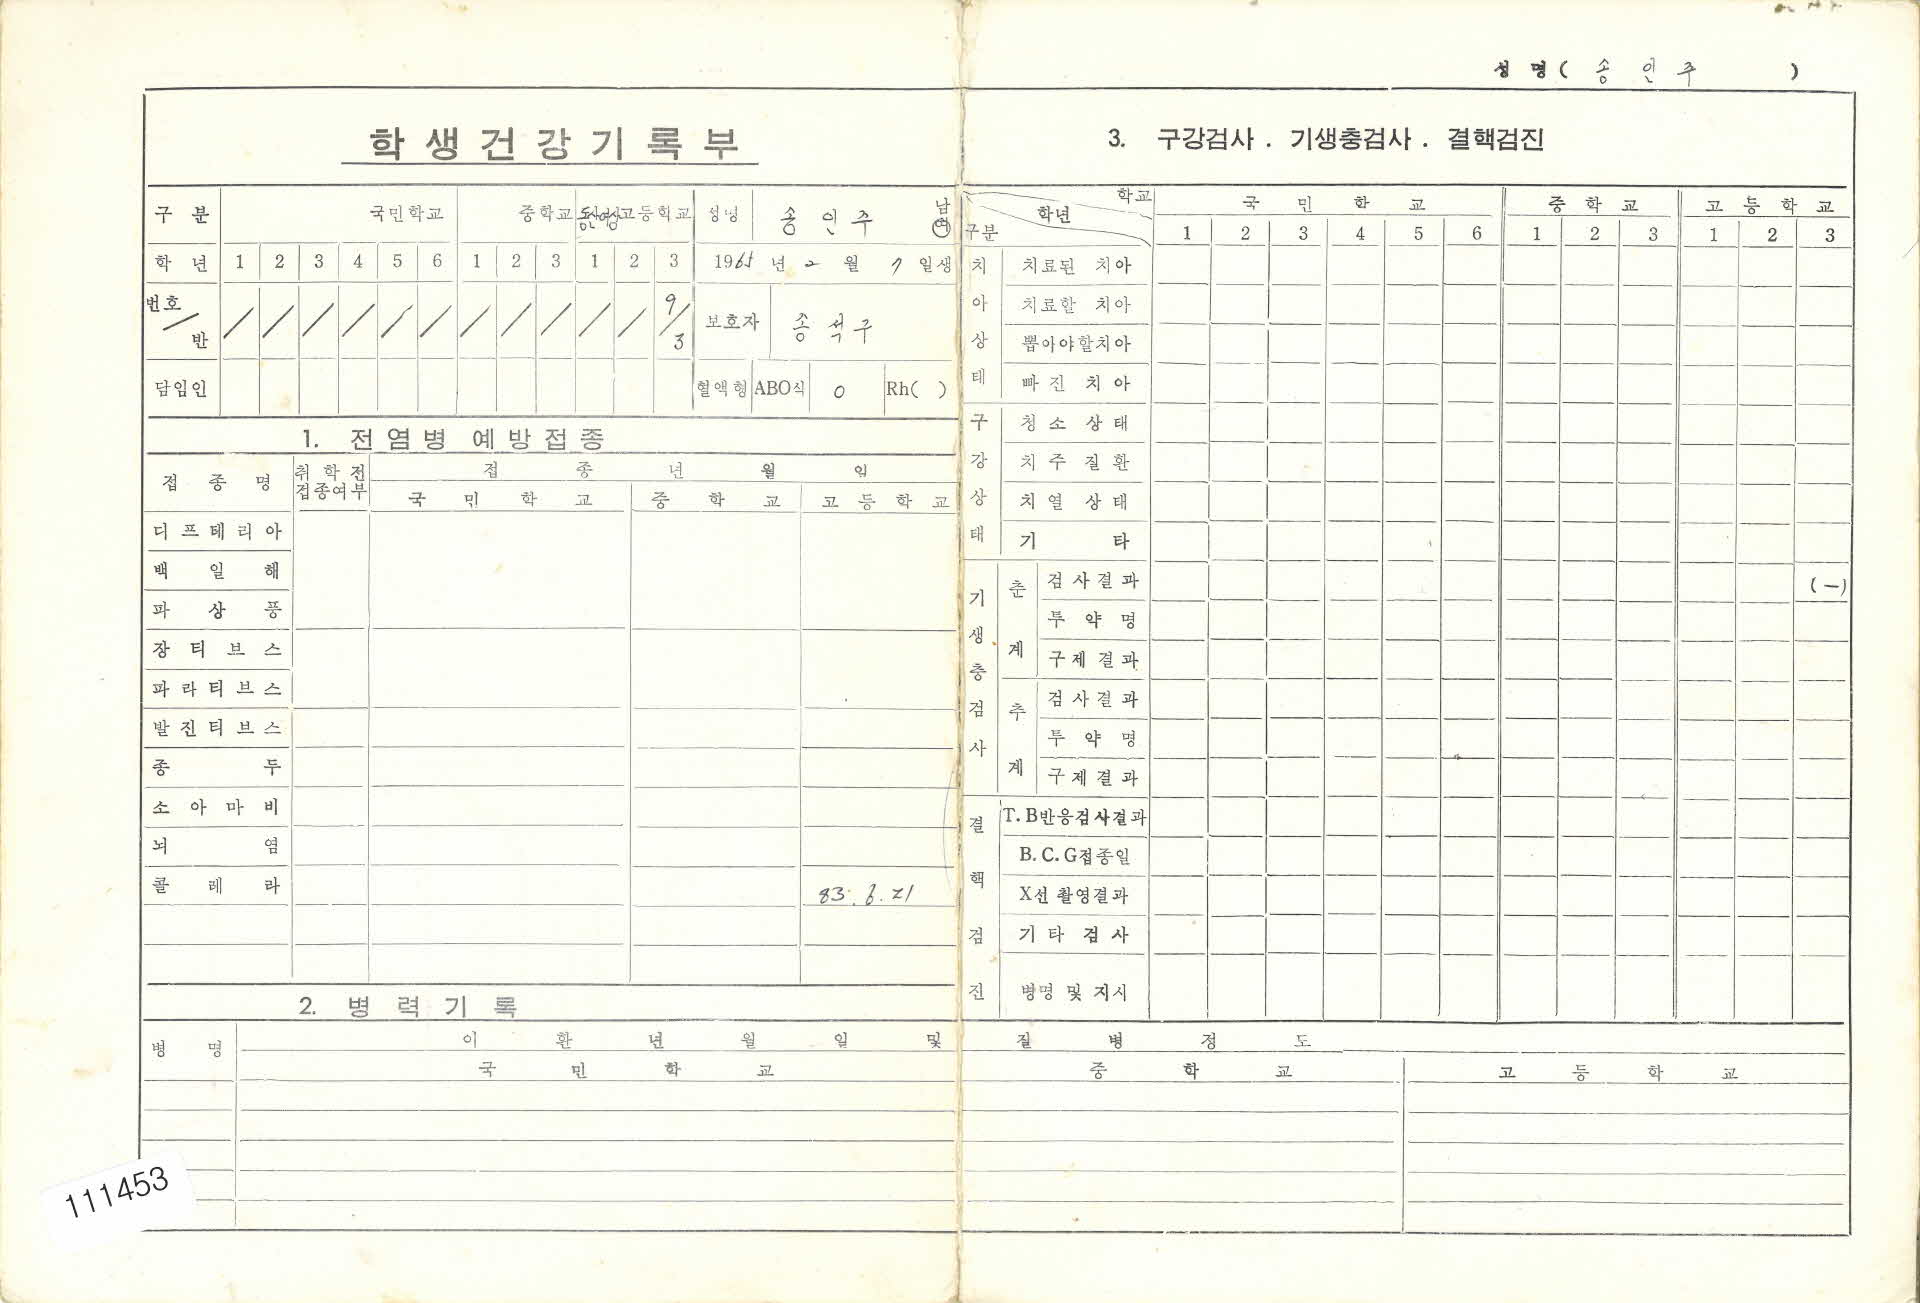 성 명 ( 송 인 주 )
학생건강기록부
구 분 국민학교 중학교 동산여상고등학교 성명 송 인 주 남 여
학 년 1 2 3 4 5 6 1 2 3 1 2 3 1965 년 2 월 7 일생
번호 / 반 / / / / / / / / / / / 9/3 보호자 송 석 구
담임인 혈액형 ABO식 O Rh( )
1. 전염병 예방접종
접 종 명 취 학 전 접종여부 접 종 년 월 일
국 민 학 교 중 학 교 고 등 학 교
디 프 테 리 아
백 일 해
파 상 풍
장 티 브 스
파 라 티 브 스
발 진 티 브 스
종 두
소 아 마 비
뇌 염
콜 레 라 83. 6. 21
3. 구강검사 . 기생충검사 . 결핵검진
학교 학년 구분 국 민 학 교 중 학 교 고 등 학 교
1 2 3 4 5 6 1 2 3 1 2 3
치 아 상 태
치료된 치아
치료할 치아
뽑아야할치아
빠 진 치 아
구 강 상 태
청 소 상 태
치 주 질 환
치 열 상 태
기 타
기 생 충 검 사
춘 계
검 사 결 과 (-)
투 약 명
구 제 결 과
추 계
검 사 결 과
투 약 명
구 제 결 과
결 핵 검 진
T. B반응검사결과
B. C. G접종일
X선 촬영결과
기 타 검 사
병명 및 지시
2. 병 력 기 록
병 명 이 환 년 월 일 및 질 병 정 도
국 민 학 교 중 학 교 고 등 학 교
111453